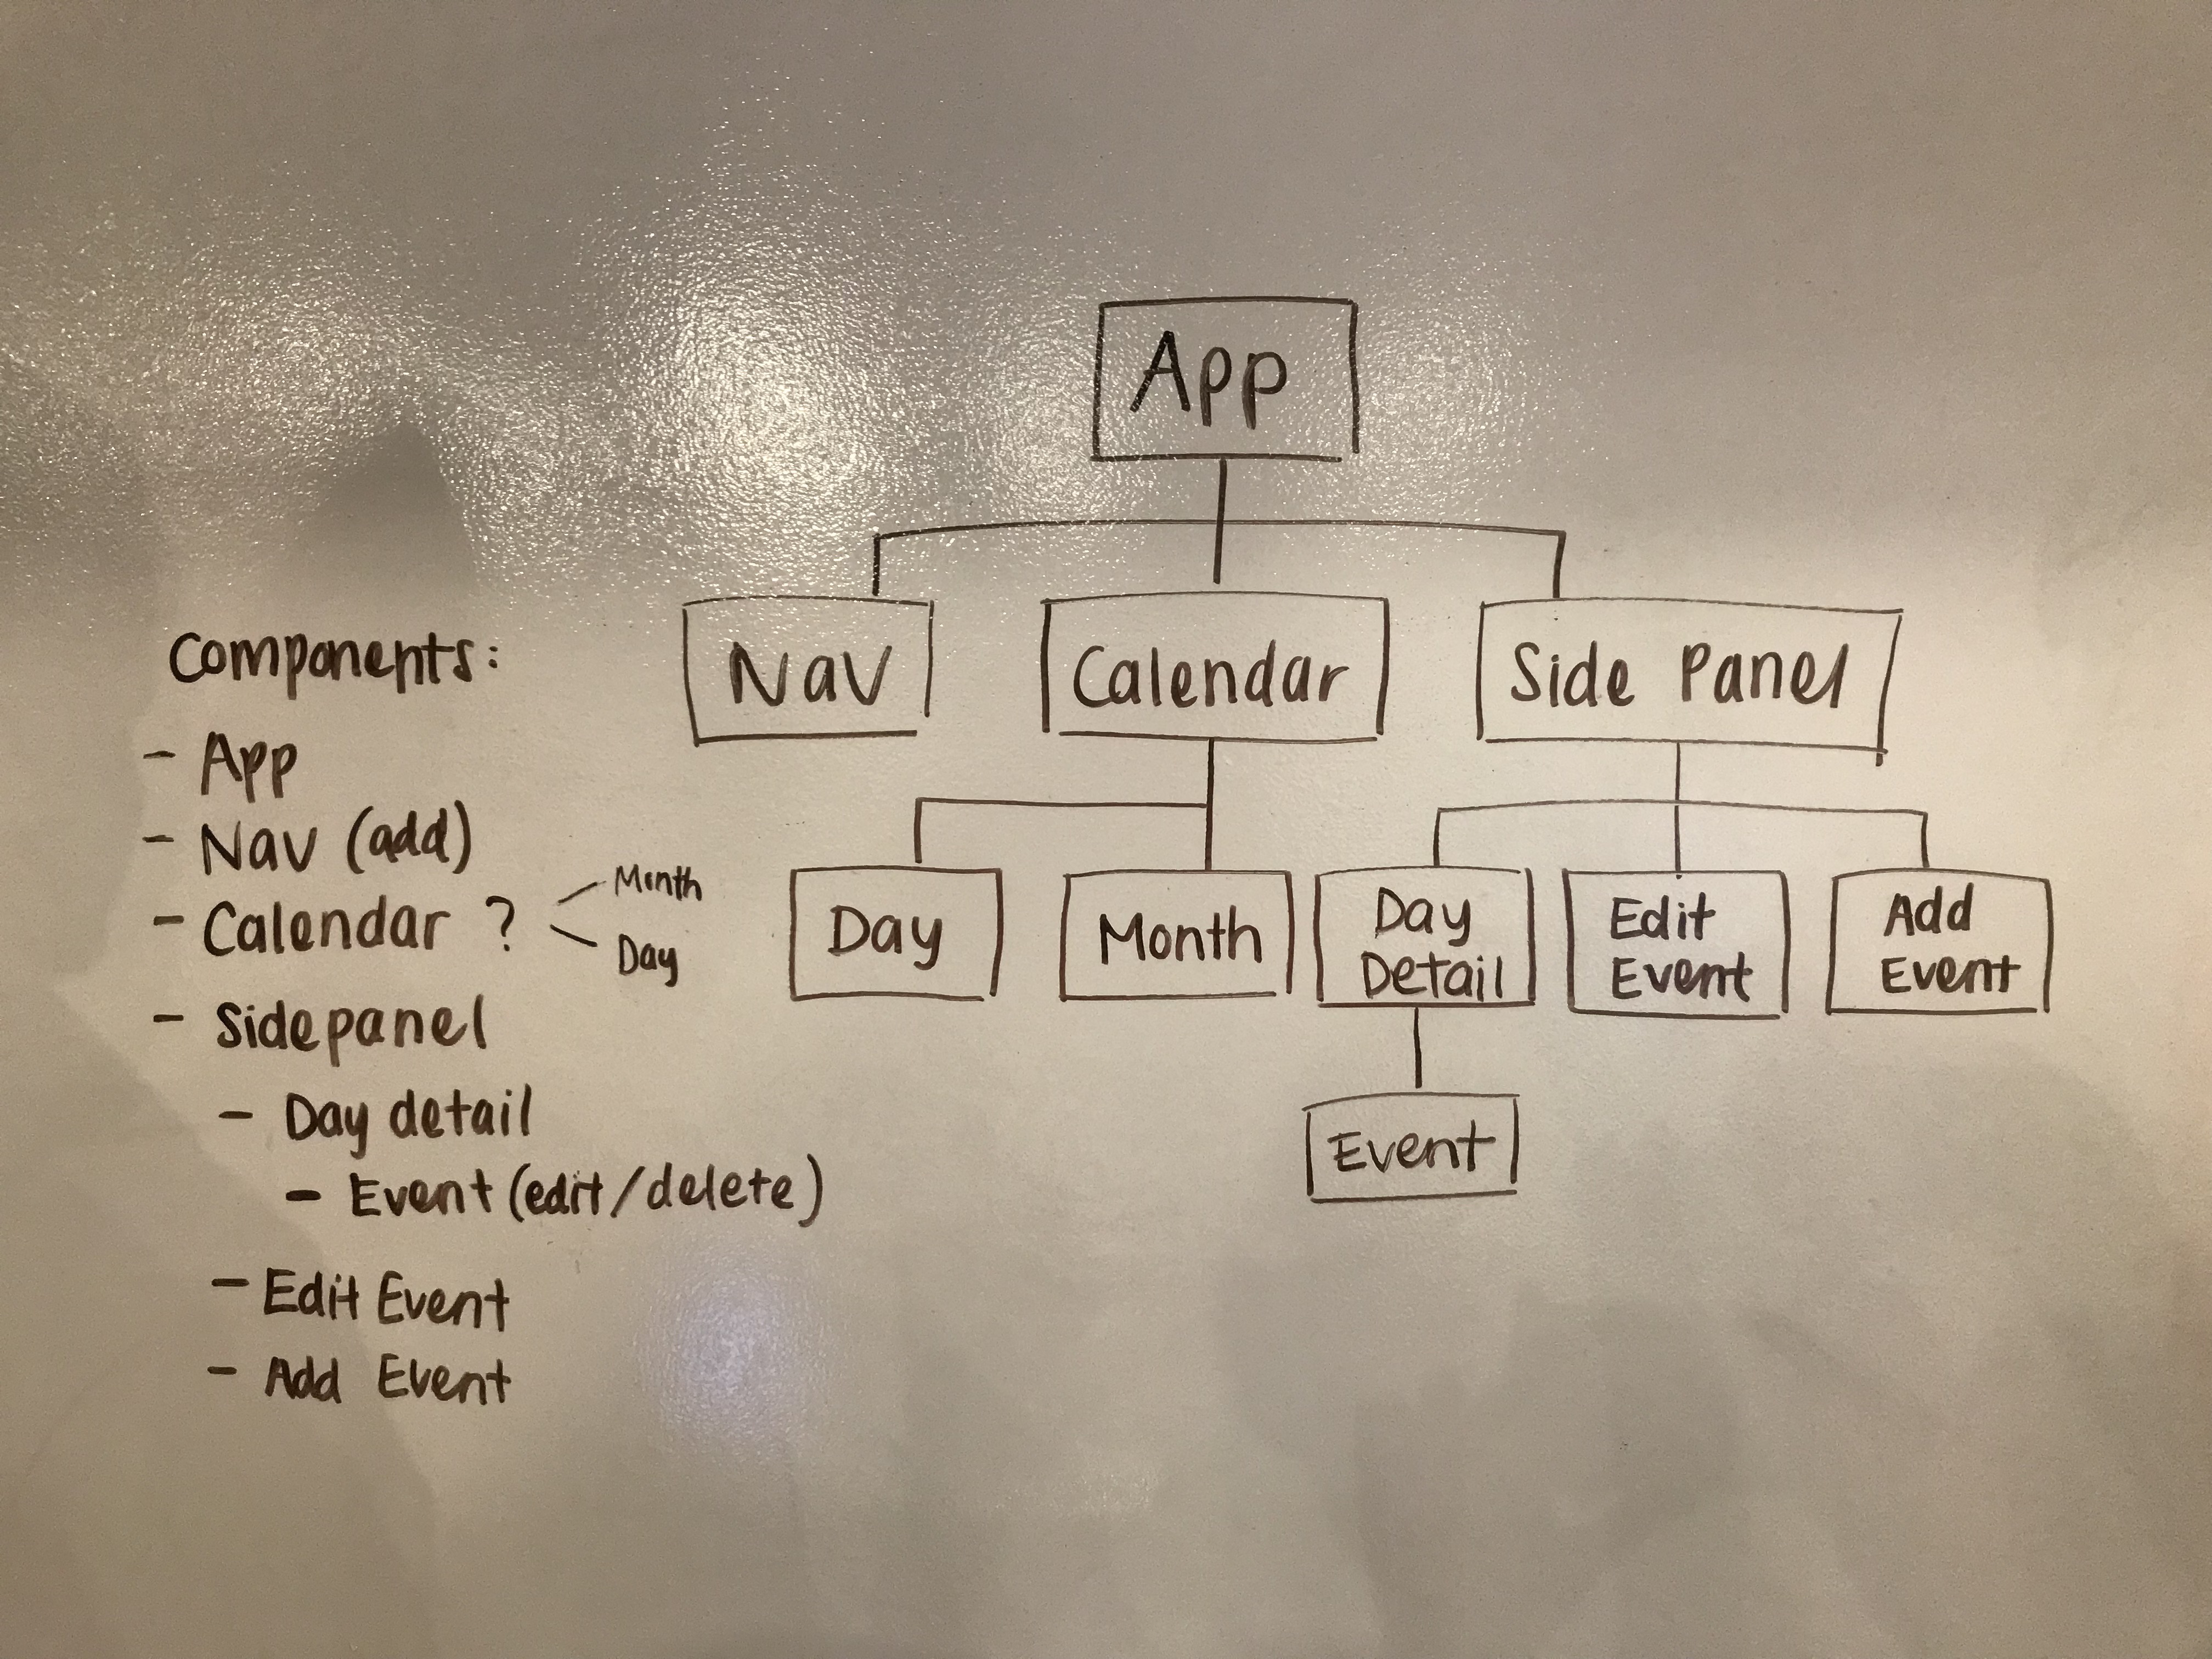 Components:
- App
- Nav (add)
- Calendar ?
Month
Day
- Sidepanel
- Day detail
- Event (edit/delete)
- Edit Event
- Add Event
App
Nav
Calendar
Side Panel
Day
Month
Day
Detail
Edit
Event
Add
Event
Event